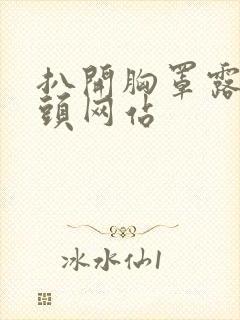 扒開胸罩露
頭网佔
冰水仙1